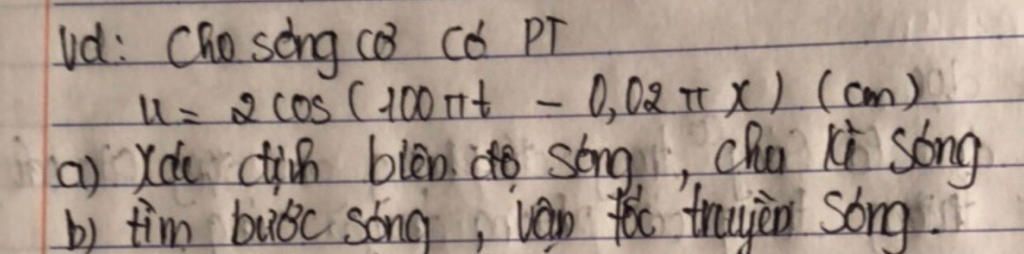 Vd: Cho sóng cơ có PT
u = 2 cos (100πt - 0,02πx) (cm)
a) Xác định biên độ sóng, chu kì sóng
b) tìm bước sóng, vận tốc truyền sóng.